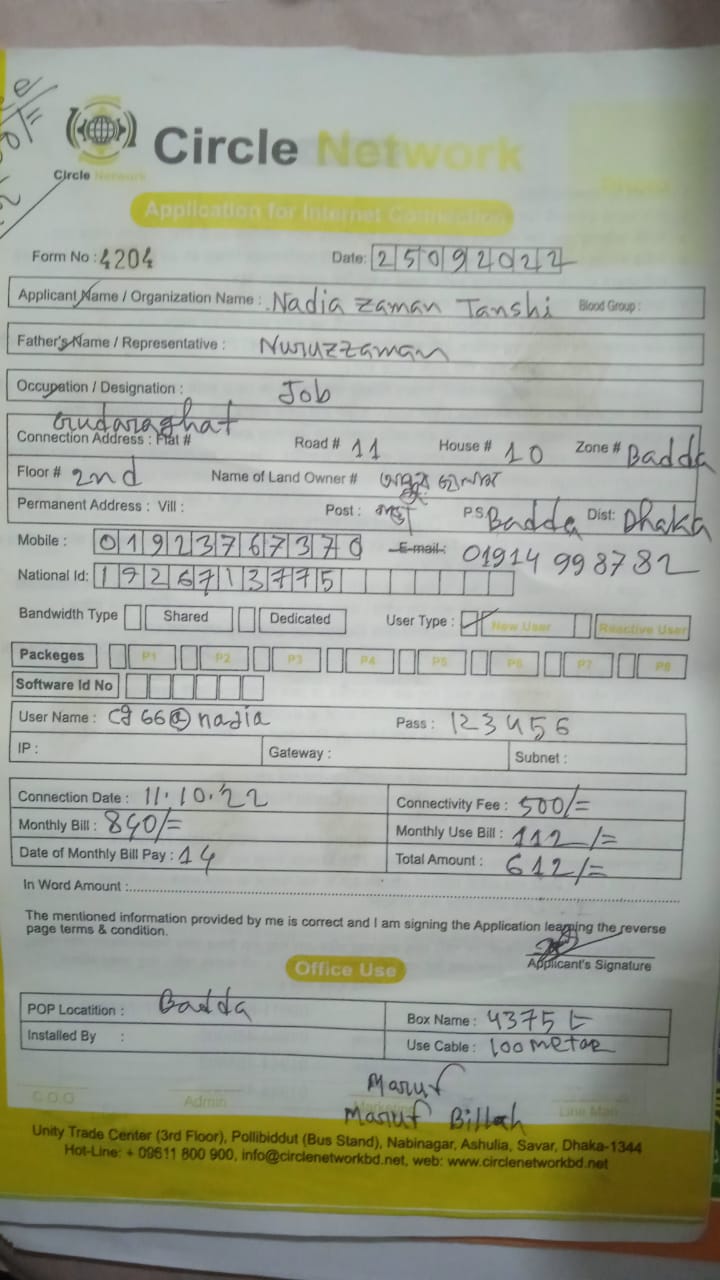 Circle Network
Circle Network
Application for Internet Connection
Form No : 4204 Date: 25092022
Applicant Name / Organization Name : Nadia Zaman Tanshi Blood Group :
Father's Name / Representative : Nuruzzaman
Occupation / Designation : Job
Gudaraghat
Connection Address : Flat # Road # 11 House # 10 Zone # Badda
Floor # 2nd Name of Land Owner #
Permanent Address : Vill : Post : P.S Badda Dist: Dhaka
Mobile : 01923767370 E-mail: 01914 998782
National Id: 1926713775
Bandwidth Type Shared Dedicated User Type : New User Reactive User
Packeges P1 P2 P3 P4 P5 P6 P7 P8
Software Id No
User Name : cg66@nadia Pass : 123456
IP : Gateway : Subnet :
Connection Date : 11.10.22 Connectivity Fee : 500/=
Monthly Bill : 840/= Monthly Use Bill : 112/=
Date of Monthly Bill Pay : 14 Total Amount : 612/=
In Word Amount :
The mentioned information provided by me is correct and I am signing the Application learning the reverse
page terms & condition.
Applicant's Signature
Office Use
POP Locatition : Badda Box Name : 4375 E
Installed By : Use Cable : 100 metar
Maruf
C O O Admin Line Man
Maruf Billah
Unity Trade Center (3rd Floor), Pollibiddut (Bus Stand), Nabinagar, Ashulia, Savar, Dhaka-1344
Hot-Line: + 09611 800 900, info@circlenetworkbd.net, web: www.circlenetworkbd.net